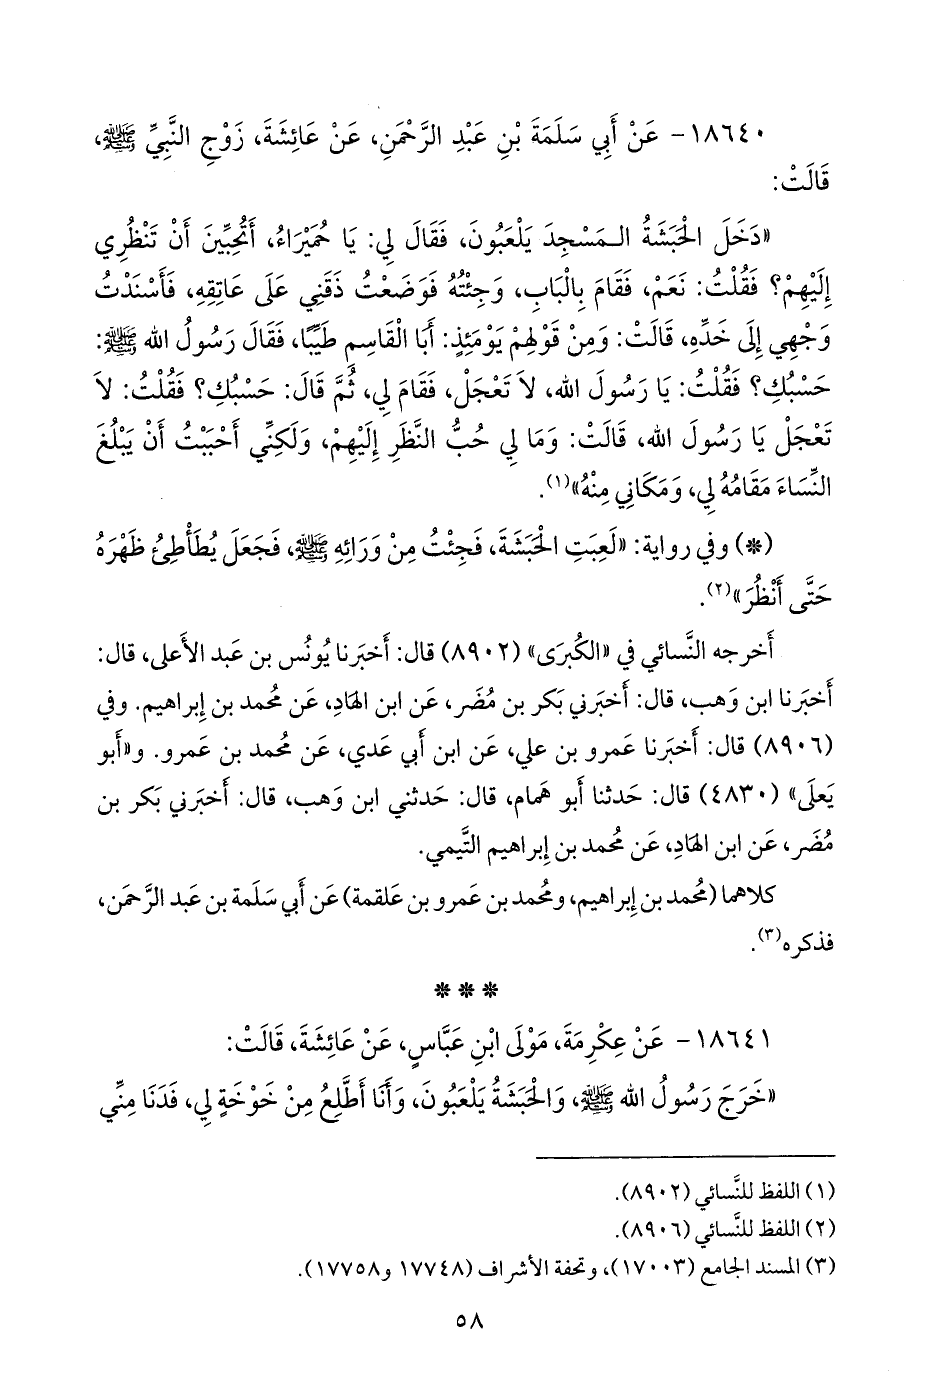 ١٨٦٤٠- عَنْ أَبِي سَلَمَةَ بْنِ عَبْدِ الرَّحْمَنِ، عَنْ عَائِشَةَ، زَوْجِ النَّبِيِّ ﷺ،
قَالَتْ:
«دَخَلَ الْحَبَشَةُ الـمَسْجِدَ يَلْعَبُونَ، فَقَالَ لِي: يَا حُمَيْرَاءُ، أَتُحِبِّينَ أَنْ تَنْظُرِي
إِلَيْهِمْ؟ فَقُلْتُ: نَعَمْ، فَقَامَ بِالْبَابِ، وَجِئْتُهُ فَوَضَعْتُ ذَقَنِي عَلَى عَاتِقِهِ، فَأَسْنَدْتُ
وَجْهِي إِلَى خَدِّهِ، قَالَتْ: وَمِنْ قَوْلِهِمْ يَوْمَئِذٍ: أَبَا الْقَاسِمِ طَيِّبًا، فَقَالَ رَسُولُ الله ﷺ:
حَسْبُكِ؟ فَقُلْتُ: يَا رَسُولَ الله، لاَ تَعْجَلْ، فَقَامَ لِي، ثُمَّ قَالَ: حَسْبُكِ؟ فَقُلْتُ: لاَ
تَعْجَلْ يَا رَسُولَ الله، قَالَتْ: وَمَا لِي حُبُّ النَّظَرِ إِلَيْهِمْ، وَلَكِنِّي أَحْبَبْتُ أَنْ يَبْلُغَ
النِّسَاءَ مَقَامُهُ لِي، وَمَكَانِي مِنْهُ»(١).
(*) وفي رواية: «لَعِبَتِ الْحَبَشَةَ، فَجِئْتُ مِنْ وَرَائِهِ ﷺ، فَجَعَلَ يُطَأْطِئُ ظَهْرَهُ
حَتَّى أَنْظُرَ»(٢).
أَخرجه النَّسائي في «الكُبرَى» (٨٩٠٢) قال: أَخبَرنا يُونُس بن عَبد الأَعلى، قال:
أَخبَرنا ابن وَهب، قال: أَخبَرني بَكر بن مُضَر، عَن ابن الهَادِ، عَن محمد بن إِبراهيم. وفي
(٨٩٠٦) قال: أَخبَرنا عَمرو بن علي، عَن ابن أَبي عَدي، عَن مُحمد بن عَمرو. و«أَبو
يَعلَى» (٤٨٣٠) قال: حَدثنا أَبو هَمام، قال: حَدثني ابن وَهب، قال: أَخبَرني بَكر بن
مُضَر، عَن ابن الهَادِ، عَن مُحمد بن إِبراهيم التَّيمي.
كلاهما (مُحمد بن إِبراهيم، ومُحمد بن عَمرو بن عَلقمة) عَن أَبي سَلَمة بن عَبد الرَّحمَن،
فذكره(٣).
* * *
١٨٦٤١- عَنْ عِكْرِمَةَ، مَوْلَى ابْنِ عَبَّاسٍ، عَنْ عَائِشَةَ، قَالَتْ:
«خَرَجَ رَسُولُ الله ﷺ، وَالْحَبَشَةُ يَلْعَبُونَ، وَأَنَا أَطَّلِعُ مِنْ خَوْخَةٍ لِي، فَدَنَا مِنِّي
(١) اللفظ للنَّسائي (٨٩٠٢).
(٢) اللفظ للنَّسائي (٨٩٠٦).
(٣) المسند الجامع (١٧٠٠٣)، وتحفة الأشراف (١٧٧٤٨ و١٧٧٥٨).
٥٨